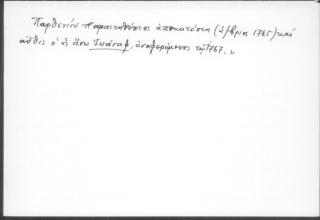 Παρθενίου παραιτηθέντος ἀποκατέστη (2/βριος 1765) καὶ
αὖθις ὁ ἐξ ἄνω Ἰωάσαφ, ἀναφερόμενος τῷ 1767. »